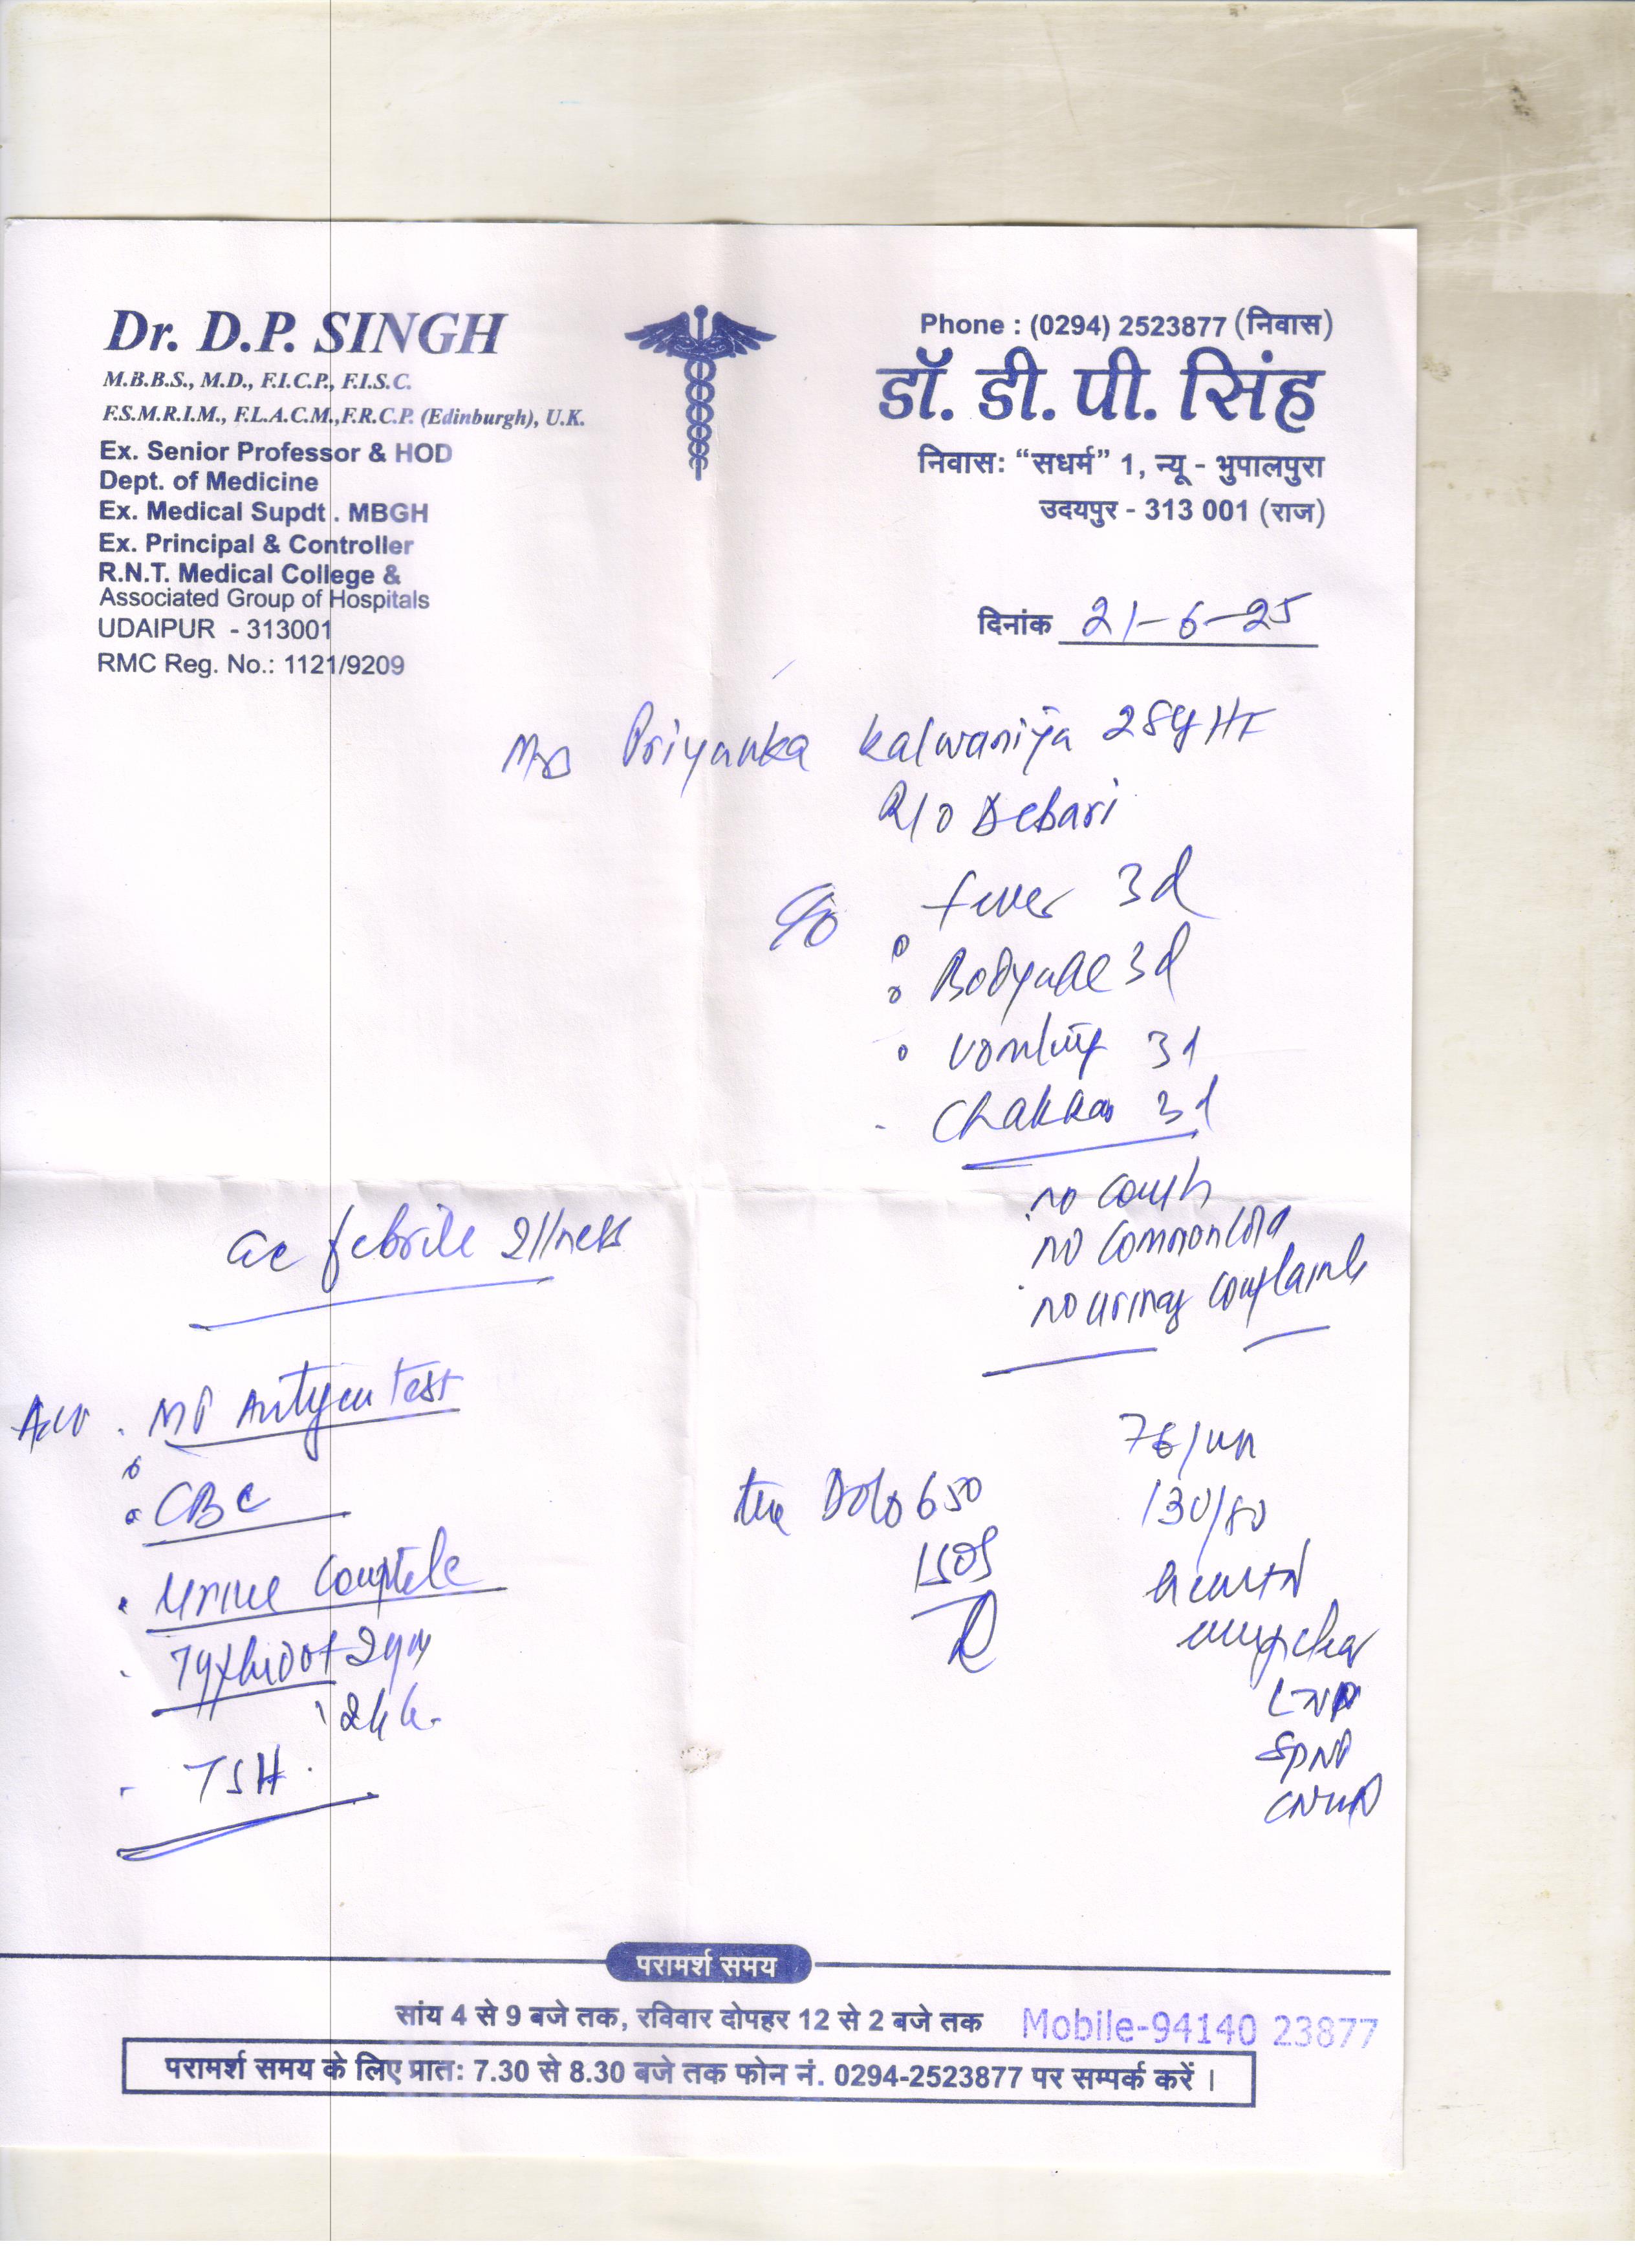 Dr. D.P. SINGH
M.B.B.S., M.D., F.I.C.P., F.I.S.C.
F.S.M.R.I.M., F.L.A.C.M.,F.R.C.P. (Edinburgh), U.K.
Ex. Senior Professor & HOD
Dept. of Medicine
Ex. Medical Supdt . MBGH
Ex. Principal & Controller
R.N.T. Medical College &
Associated Group of Hospitals
UDAIPUR - 313001
RMC Reg. No.: 1121/9209
Phone : (0294) 2523877 (निवास)
डॉ. डी. पी. सिंह
निवास: “सधर्म” 1, न्यू - भुपालपुरा
उदयपुर - 313 001 (राज)
दिनांक 21-6-25
Mrs Priyanka Kalwaniya 28y
R/o Debari
C/o fever 3d
Bodyache 3d
vomiting 3d
Chakkar 3d
no cough
no common cold
no urinary complaints
ac febrile illness
Adv. MP Antigen test
CBC
Urine Complete
Typhidot Igm
TSH
Dolo 650
1 SOS
76/mn
130/80
परामर्श समय
सांय 4 से 9 बजे तक, रविवार दोपहर 12 से 2 बजे तक
Mobile-94140 23877
परामर्श समय के लिए प्रात: 7.30 से 8.30 बजे तक फोन नं. 0294-2523877 पर सम्पर्क करें ।